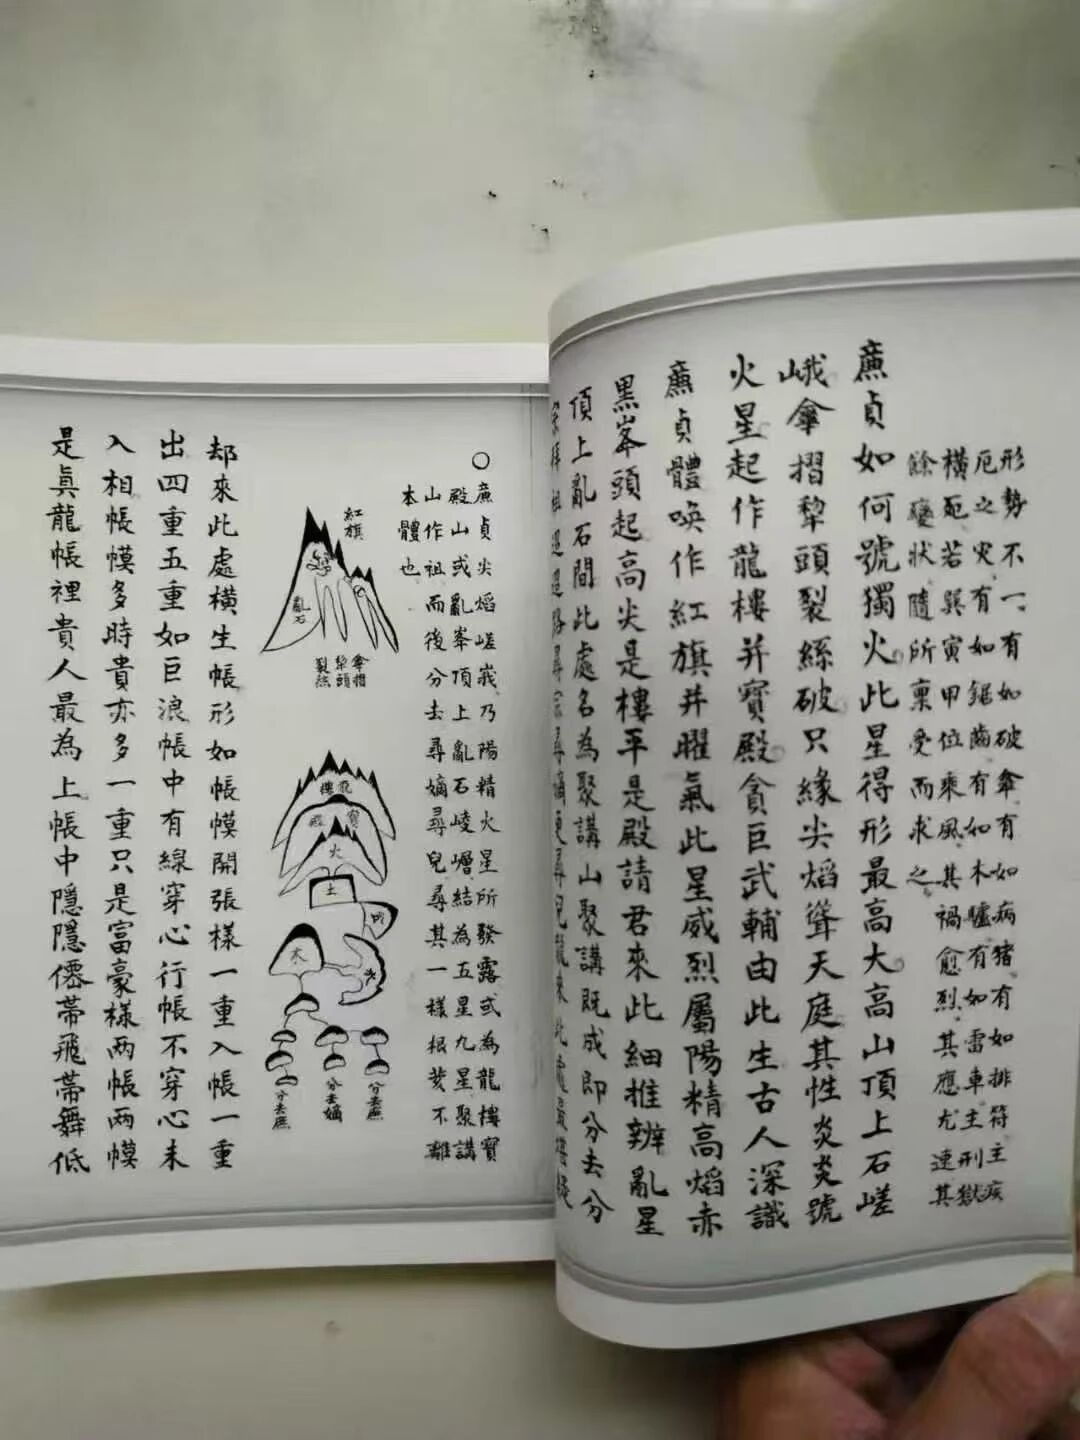 形勢不一有如破傘有如病猪有如排符主疾
厄之灾有如鋸齒有如木驢有如雷車主刑獄
橫死若巽寅甲位乘風其禍愈烈其應尤速其
餘變狀隨所稟受而求之
廉貞如何號獨火此星得形最高大高山頂上石嵯
峨傘摺犂頭裂絲破只緣尖焰聳天庭其性炎炎號
火星起作龍樓并寶殿貪巨武輔由此生古人深識
廉貞體喚作紅旗并曜氣此星威烈屬陽精高焰赤
黑峯頭起高尖是樓平是殿請君來此細推辨亂星
頂上亂石間此處名為聚講山聚講既成即分去分
○廉貞尖焰嵯峩乃陽精火星所發露或為龍樓寶
殿山或亂峯頂上亂石崚嶒結為五星九星聚講
山作祖而後分去尋嫡尋兒尋其一樣根荄不離
本體也
紅旗
亂石
傘摺
犂頭
裂絲
龍樓
寶殿
火
土
木
分去庶
分去嫡
分去庶
却來此處橫生帳形如帳幙開張樣一重入帳一重
出四重五重如巨浪帳中有線穿心行帳不穿心未
入相帳幙多時貴亦多一重只是富豪樣两帳两幙
是眞龍帳裡貴人最為上帳中隱隱僊帶飛帶舞低